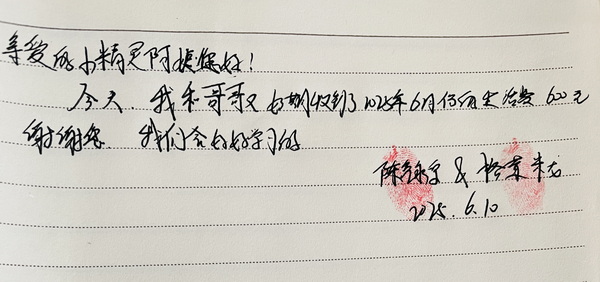 亲爱的小精灵阿姨您好！
今天，我和哥哥又如期收到了2025年6月份的生活费600元
谢谢您 我们会好好学习的
陈 &
2025.6.10